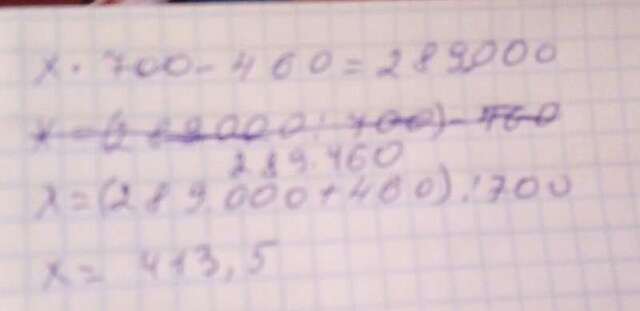 x · 700 - 460 = 289.000
x = (289000 : 700) - 460
289.460
x = (289.000 + 460) : 700
x = 413,5